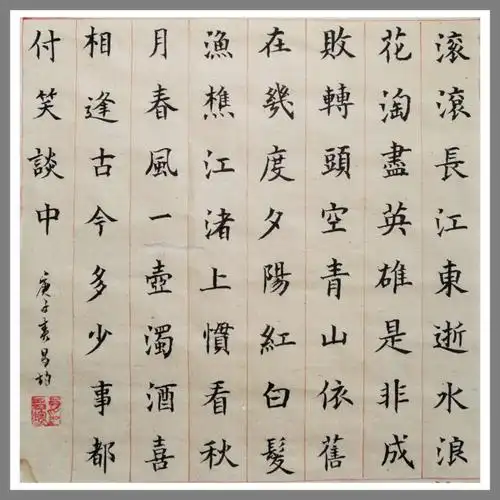 滚滾長江東逝水浪
花淘盡英雄是非成
敗轉頭空青山依舊
在幾度夕陽紅白髮
漁樵江渚上慣看秋
月春風一壺濁酒喜
相逢古今多少事都
付笑談中
庚子春昌均